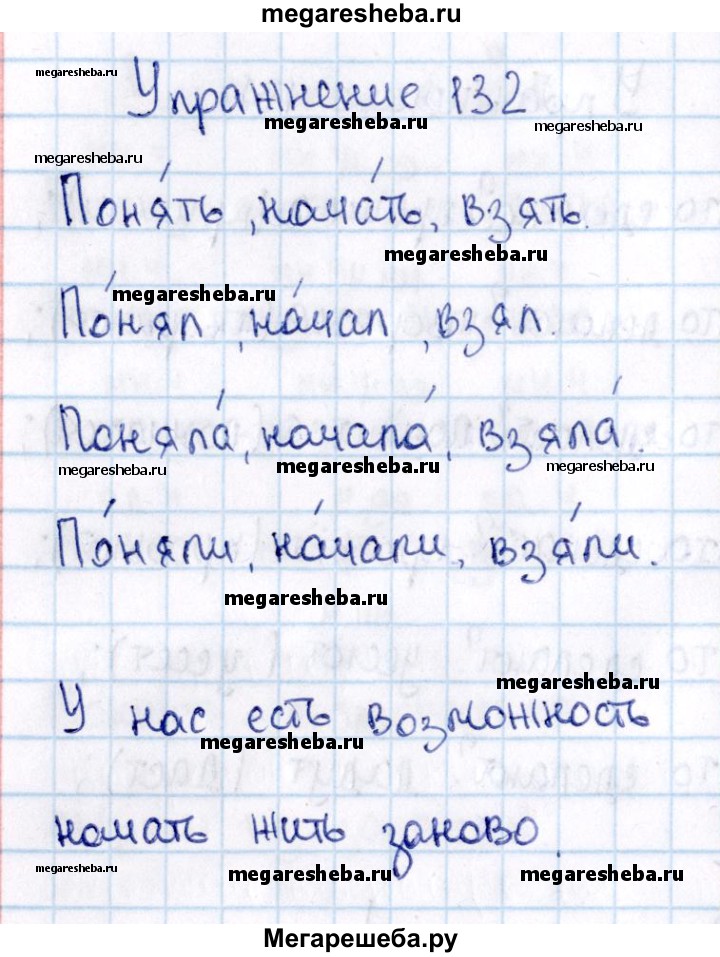 megaresheba.ru
megaresheba.ru
Упражнение 132
megaresheba.ru
megaresheba.ru
megaresheba.ru
Поня́ть, нача́ть, взять.
megaresheba.ru
megaresheba.ru
По́нял, на́чал, взял.
Поняла́, начала́, взяла́.
megaresheba.ru
megaresheba.ru
megaresheba.ru
По́няли, на́чали, взя́ли.
megaresheba.ru
megaresheba.ru
У нас есть возможность
megaresheba.ru
начать жить заново.
megaresheba.ru
megaresheba.ru
megaresheba.ru
Мегарешеба.ру